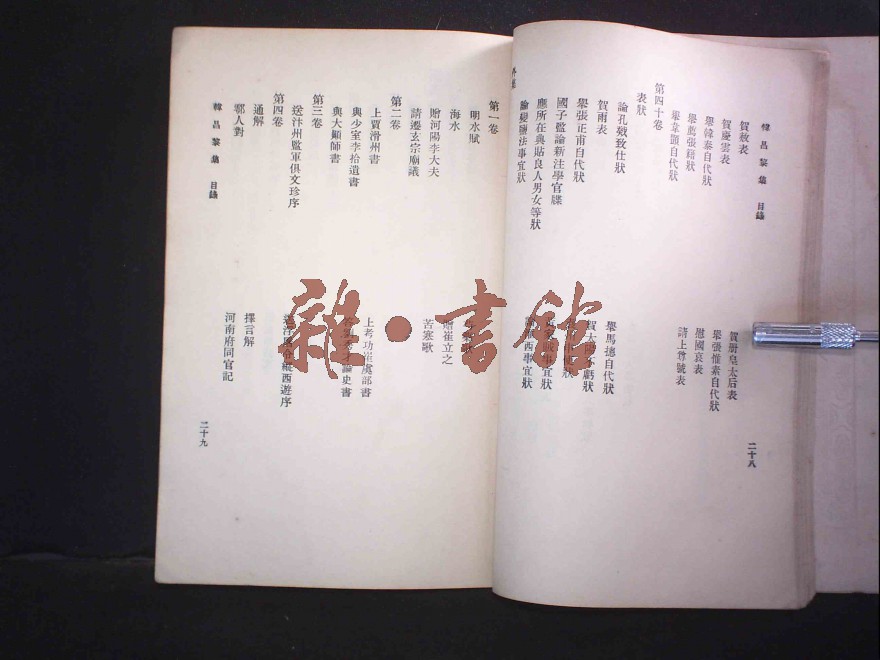 韓昌黎集 目錄 二十八
賀赦表 賀册皇太后表
賀慶雲表 舉張惟素自代狀
舉韓泰自代狀 慰國哀表
舉薦張籍狀 請上尊號表
舉韋顗自代狀
第四十卷
表狀
論孔戣致仕狀 舉馬摠自代狀
賀雨表 賀太 虧狀
舉張正甫自代狀 狀
國子監論新注學官牒 事宜狀
應所在典貼良人男女等狀 西事宜狀
論變鹽法事宜狀
外集
第一卷
明水賦
海水 贈崔立之
贈河陽李大夫 苦寒歌
請遷玄宗廟議
第二卷
上賈滑州書 上考功崔虞部書
與少室李拾遺書 論史書
與大顚師書
第三卷
送汴州監軍俱文珍序 送浮屠令縱西遊序
第四卷
通解 擇言解
鄠人對 河南府同官記
韓昌黎集 目錄 二十九
雜·書館